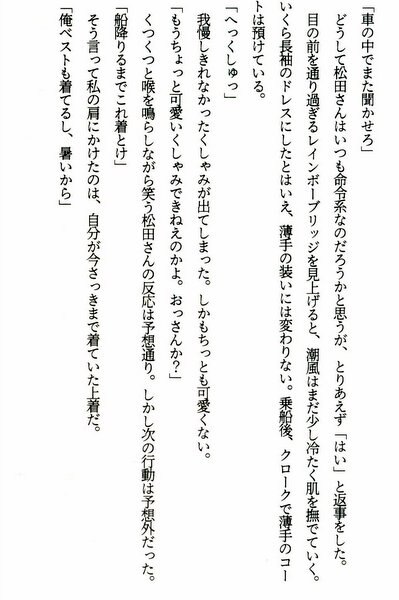 「車の中でまた聞かせろ」
どうして松田さんはいつも命令系なのだろうかと思うが、とりあえず「はい」と返事をした。
目の前を通り過ぎるレインボーブリッジを見上げると、潮風はまだ少し冷たく肌を撫でていく。
いくら長袖のドレスにしたとはいえ、薄手の装いには変わりない。乗船後、クロークで薄手のコー
トは預けている。
「へっくしゅっ」
我慢しきれなかったくしゃみが出てしまった。しかもちっとも可愛くない。
「もうちょっと可愛いくしゃみできねえのかよ。おっさんか？」
くつくつと喉を鳴らしながら笑う松田さんの反応は予想通り。しかし次の行動は予想外だった。
「船降りるまでこれ着とけ」
そう言って私の肩にかけたのは、自分が今さっきまで着ていた上着だ。
「俺ベストも着てるし、暑いから」